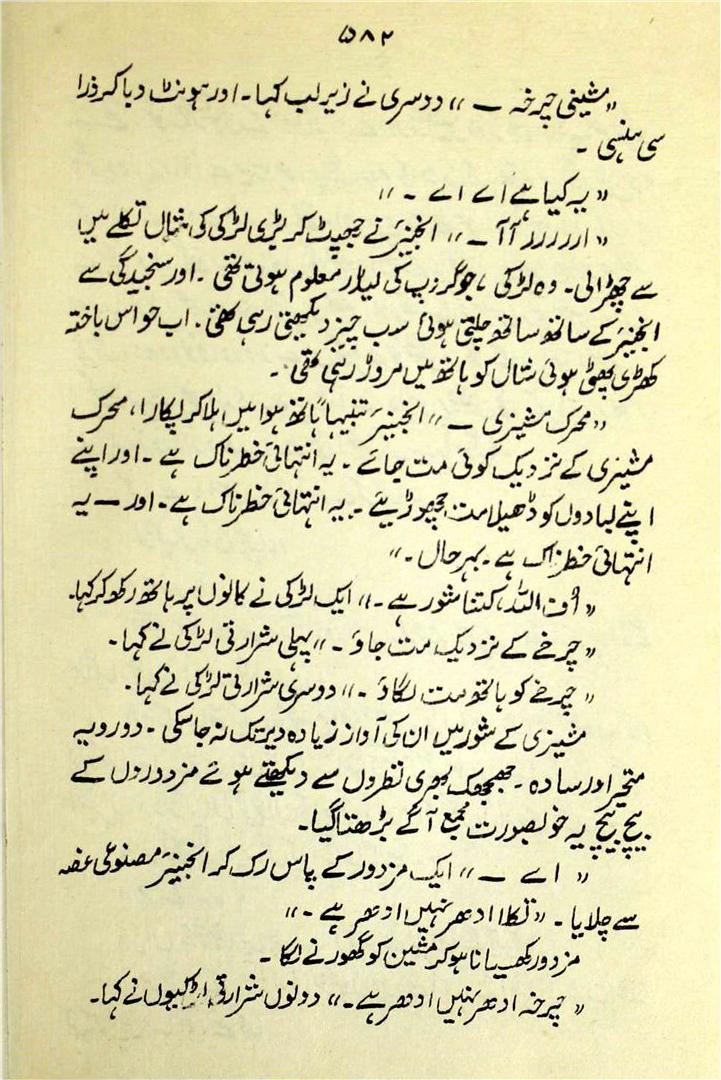 ۵۸۲
"مشینی چرخہ — " دوسری نے زیرلب کہا۔ اور ہونٹ دبا کر ذرا
سی ہنسی ۔
"یہ کیا ہے اے اے ۔ "
"ارررررر آآ — " انجنیئر نے جھپٹ کر بڑی لڑکی کی شال تکلے میں
سے چھڑائی۔ وہ لڑکی ، جو گروپ کی لیڈر معلوم ہوتی تھی ۔ اور سنجیدگی سے
انجنیئر کے ساتھ ساتھ چلتی ہوئی سب چیز دیکھتی رہی تھی ۔ اب حواس باختہ
کھڑی پھٹی ہوئی شال کو ہاتھ میں مروڑ رہی تھی ۔
"محرک مشینری — " انجنیئر تنبیہاً ہاتھ ہوا میں ہلا کر پکارا، محرک
مشینری کے نزدیک کوئی مت جائے ۔ یہ انتہائی خطرناک ہے ۔ اور اپنے
اپنے لبادوں کو ڈھیلا مت چھوڑیئے ۔ یہ انتہائی خطرناک ہے ۔ اور — یہ
انتہائی خطرناک ہے ۔ بہرحال ۔ "
"اُف اللہ، کتنا شور ہے ۔ " ایک لڑکی نے کانوں پر ہاتھ رکھ کر کہا۔
"چرخے کے نزدیک مت جاؤ ۔ " پہلی شرارتی لڑکی نے کہا ۔
"چرخے کو ہاتھ مت لگاؤ ۔ " دوسری شرارتی لڑکی نے کہا ۔
مشینری کے شور میں ان کی آواز زیادہ دیر تک نہ جا سکی ۔ دورویہ
متحیر اور سادہ ۔ جھجھک بھری نظروں سے دیکھتے ہوئے مزدوروں کے
بیچ بیچ یہ خوبصورت مجمع آگے بڑھتا گیا۔
"اے — " ایک مزدور کے پاس رک کر انجنیئر مصنوعی غصہ
سے چلایا ۔ "تکلا ادھر نہیں ادھر ہے ۔ "
مزدور کھسیانا ہو کر مشین کو گھورنے لگا ۔
"چرخہ ادھر نہیں ادھر ہے ۔ " دونوں شرارتی لڑکیوں نے کہا۔